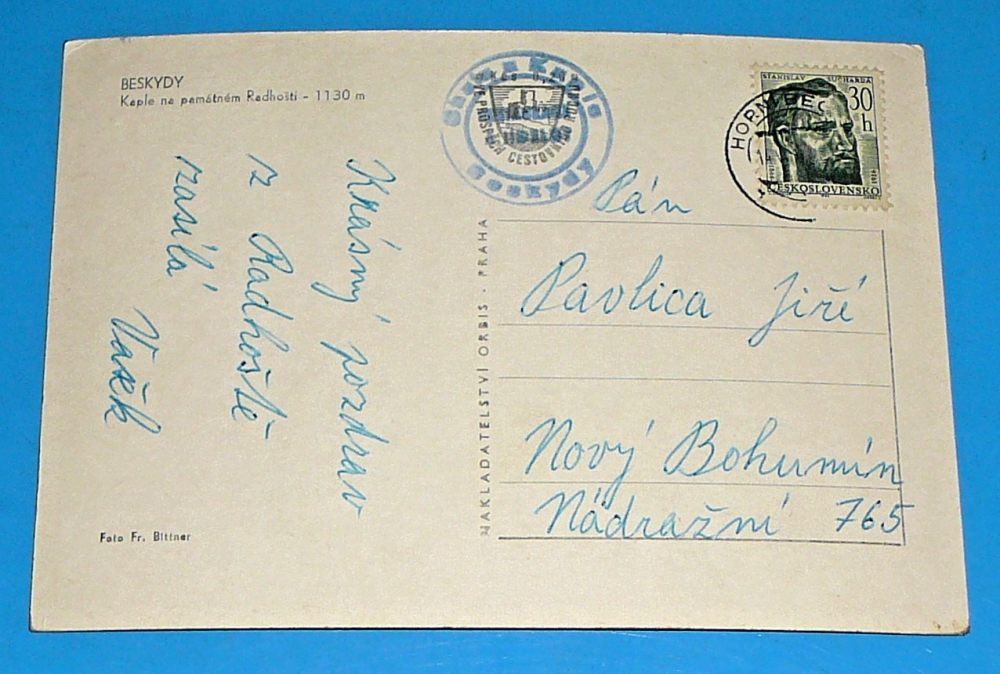 BESKYDY
Kaple na památném Radhošti - 1130 m
Krásný pozdrav
z Radhoště
zasílá
Vašek
Foto Fr. Bittner
NAKLADATELSTVÍ ORBIS - PRAHA
Beskydy
Kčs 0,20
CESTOVNÍHO
STANISLAV SUCHARDA
30
h
ČESKOSLOVENSKO
HORNÍ BEČ
Pán
Pavlica Jiří
Nový Bohumín
Nádražní 765